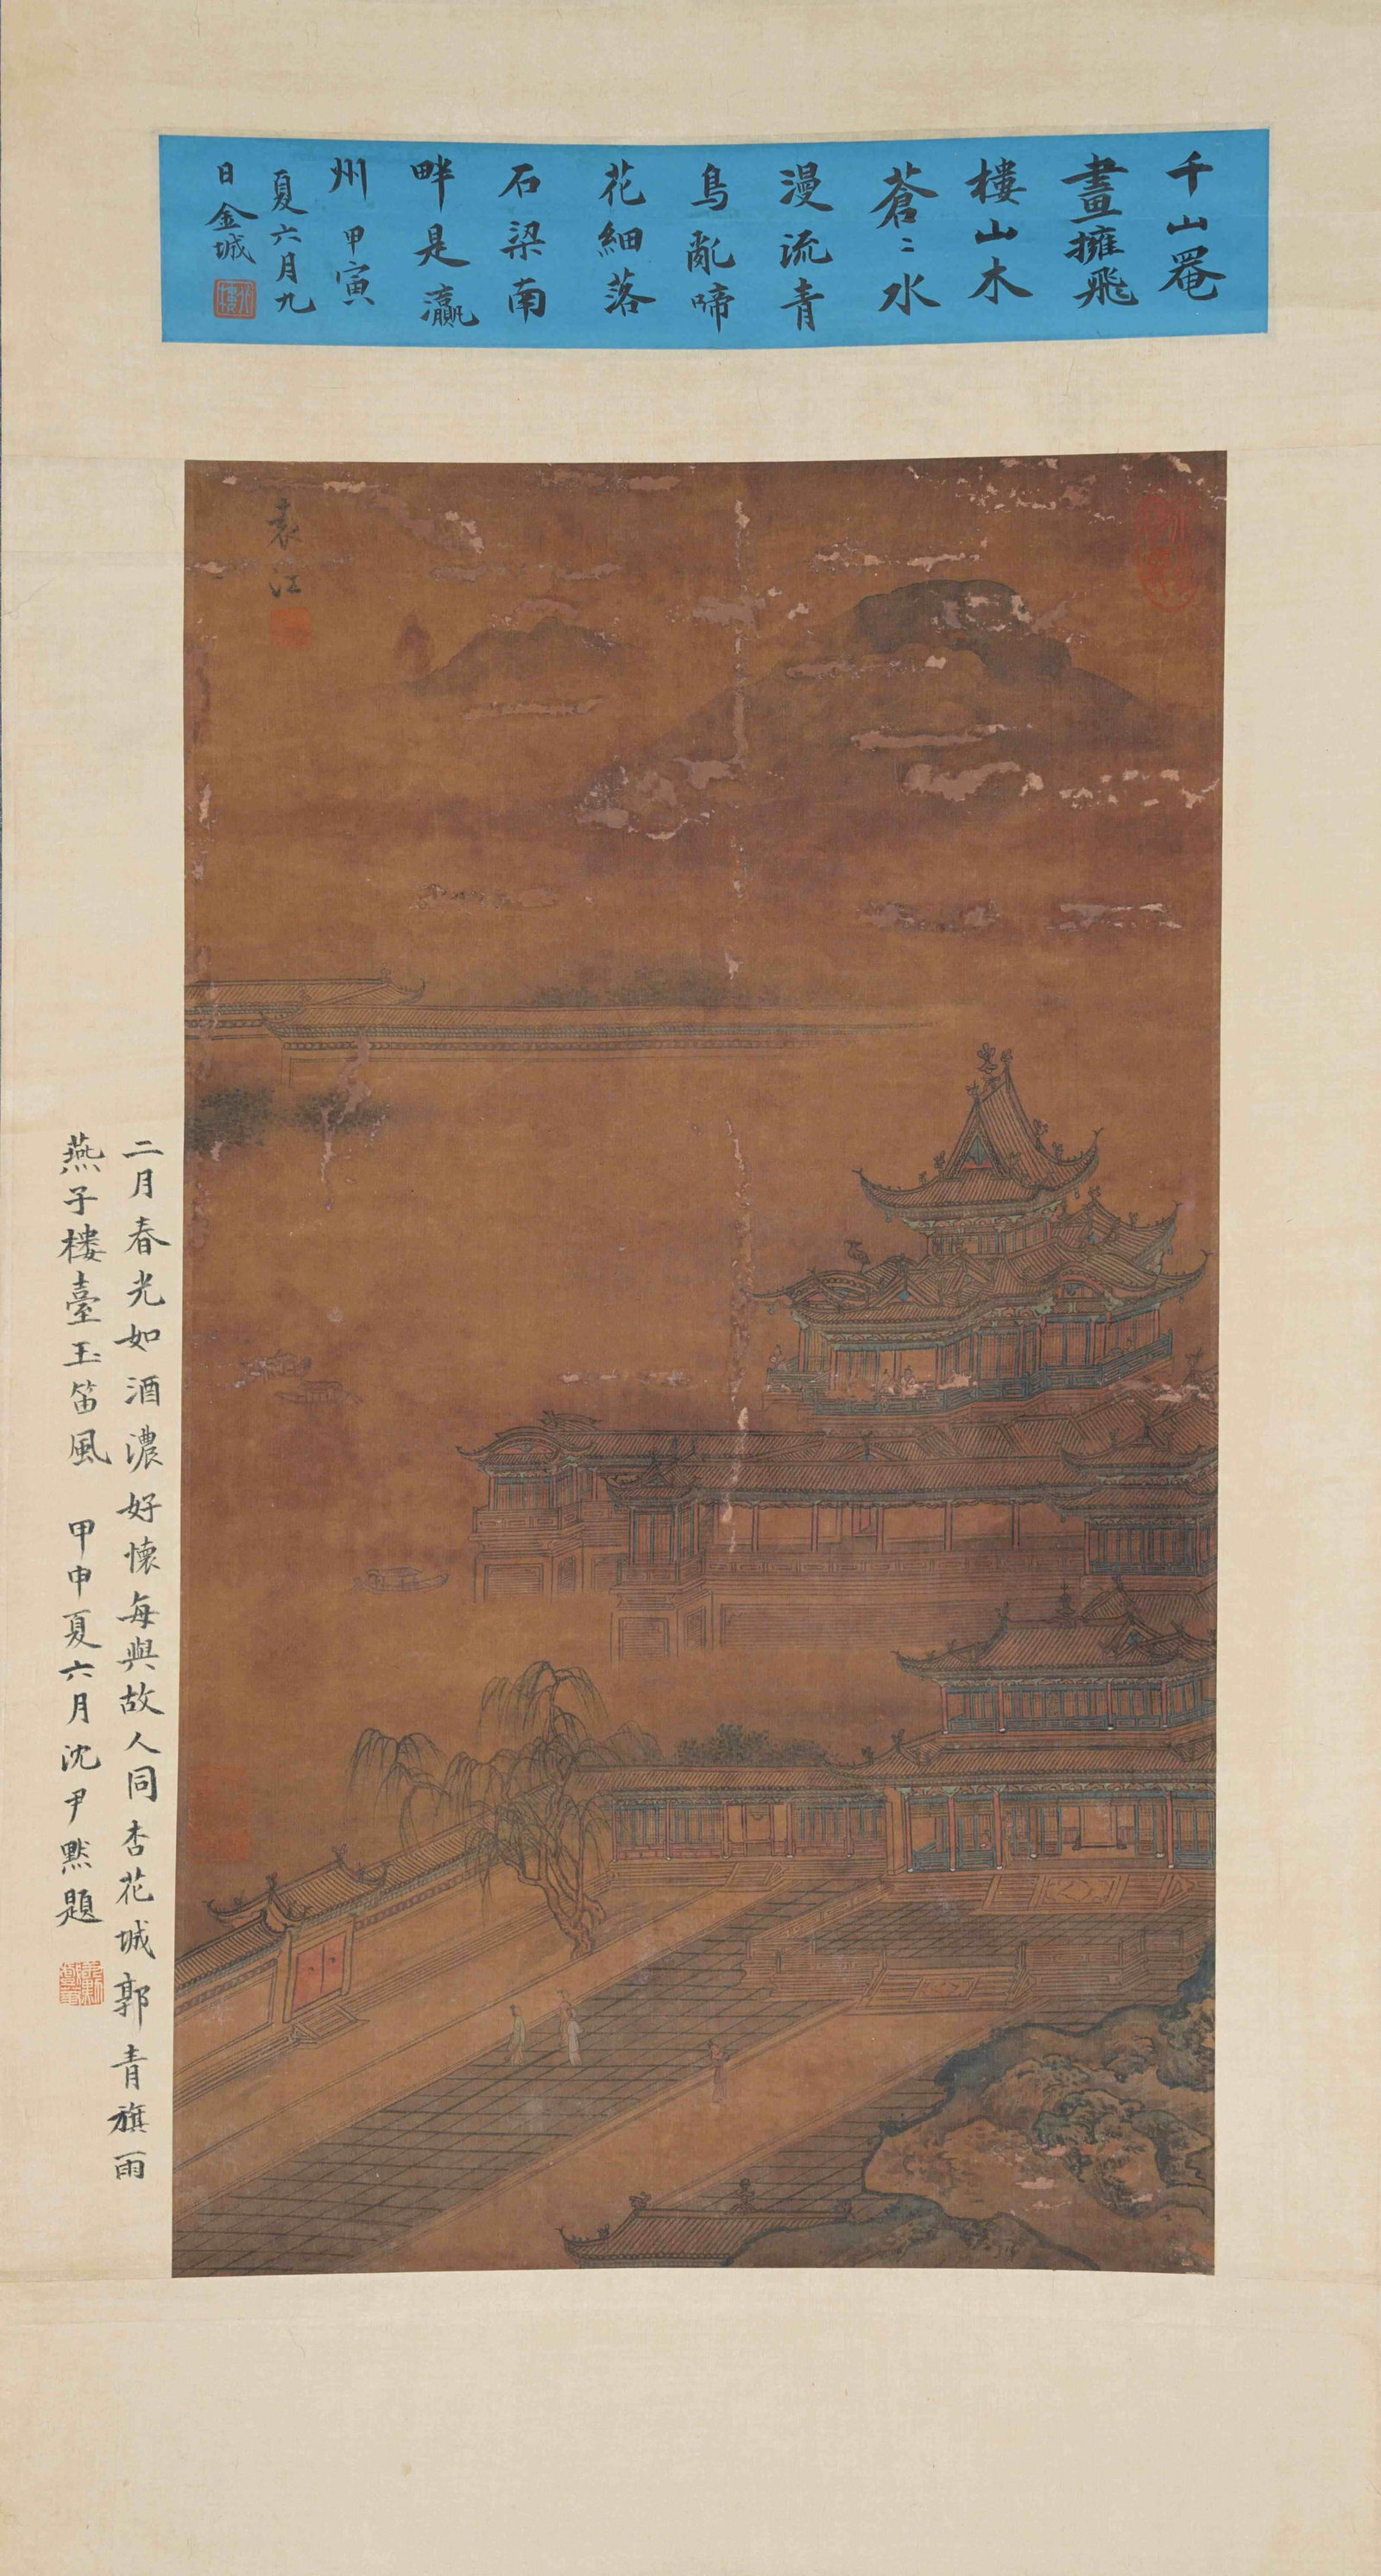 千山罨
畫擁飛
樓山木
蒼〻水
漫流青
鳥亂啼
花細落
石梁南
畔是瀛
州甲寅
夏六月九
日金城
袁江
二月春光如酒濃好懷每與故人同杏花城郭青旗雨
燕子樓臺玉笛風 甲申夏六月沈尹默題